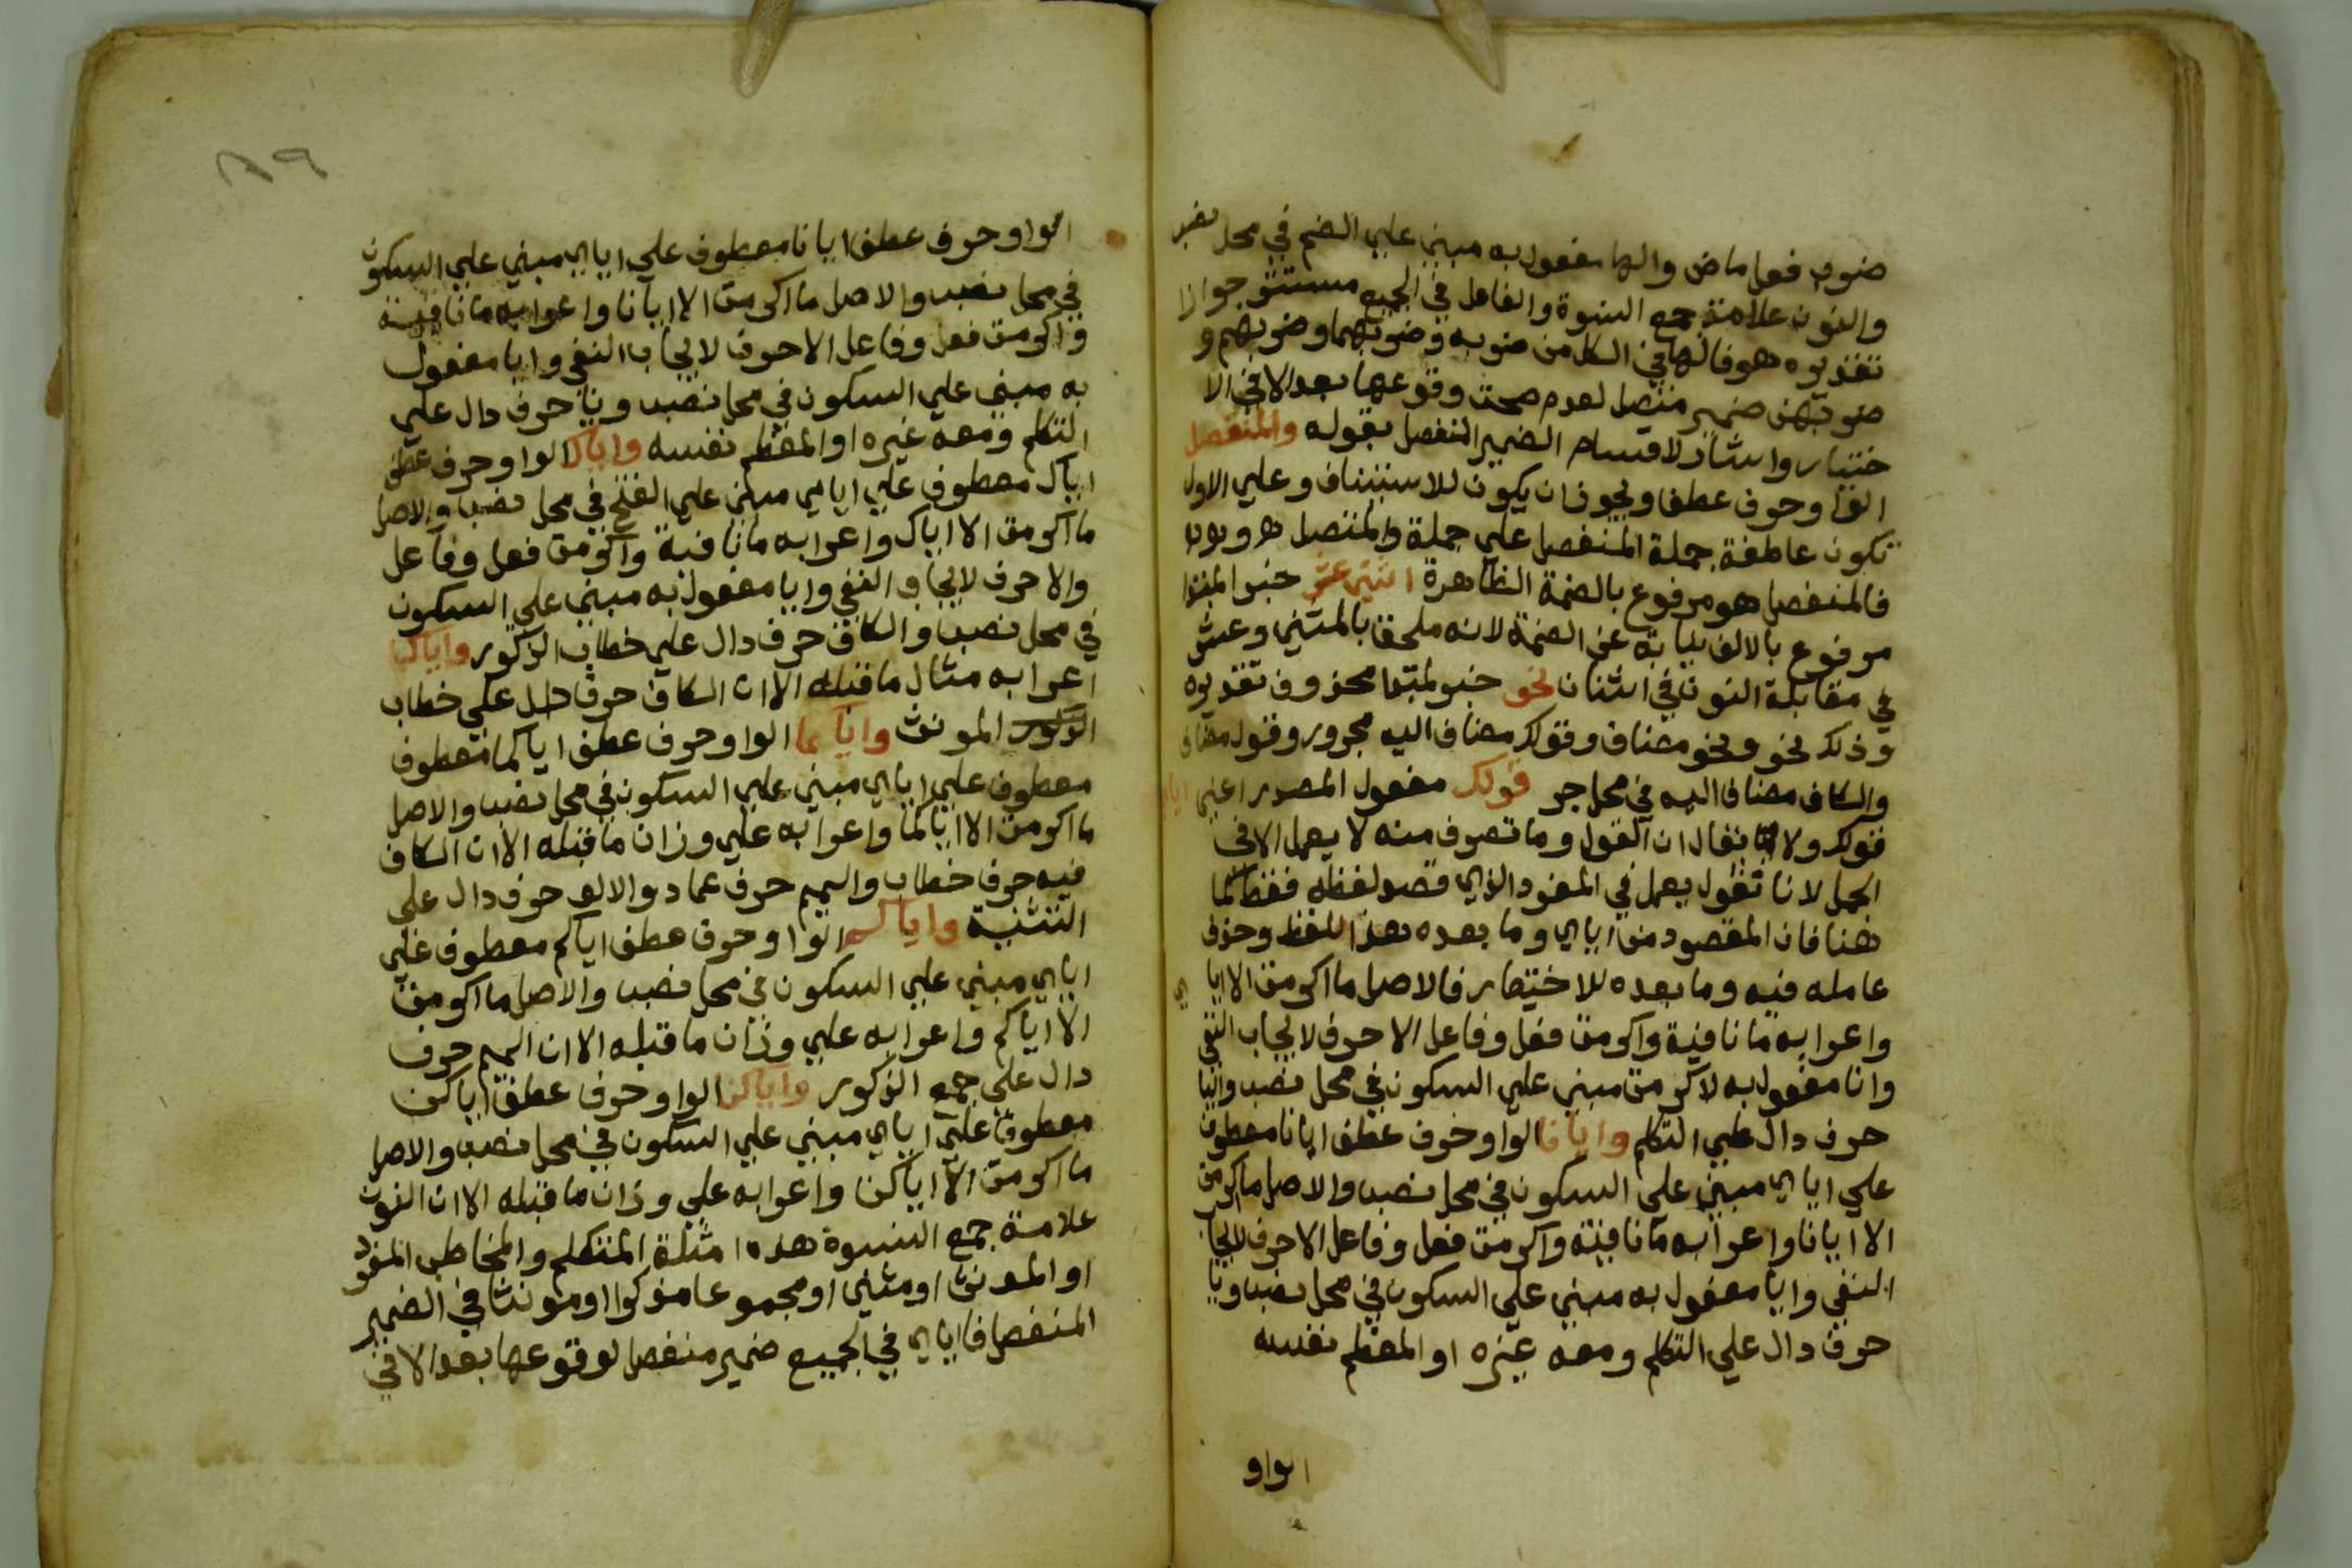 ضرب فعل ماض والها مفعول به مبني علي الضم في محل نصب
والنون علامة جمع النسوة والفاعل في الجميع مستتر جوازا
تقديره هو فالها في الكل من ضربه وضربهما وضربهم و
ضربهن ضمير متصل لعدم صحت وقوعها بعد الا في الا
ختيار واشار لاقسام الضمير المنفصل بقوله والمنفصل
الواو حرف عطف ويجوز ان يكون للاستيناف وعلي الاول
تكون عاطفة جملة المنفصل علي جملة والمتصل هو
فالمنفصل هو مرفوع بالضمة الظاهرة اثني عشر خبر المبتدا
مرفوع بالالف نيابة عن الضمة لانه ملحق بالمثني وعشر
في مقابلة النون في اثنان نحو خبر لمبتدا محذوف تقديره
وذلك نحو ونحو مضاف وقولك مضاف اليه مجرور وقول مضاف
والكاف مضاف اليه في محل جر قولك مفعول المصدر اعني اياي
قولك ولا يقال ان القول وما تصرف منه لا يعمل الا في
الجمل لانا نقول يعمل في المفرد الذي قصد لفظه فقط كما
هنا فان المقصود من اياي وما بعده هذا اللفظ وحذف
عامله فيه وما بعده للاختصار فالاصل ما اكرمت الا اياي
واعرابه ما نافية واكرمت فعل وفاعل الا حرف لايجاب النفي
وايا مفعول به لاكرمت مبني علي السكون في محل نصب واليا
حرف دال علي التكلم وايانا الواو حرف عطف ايانا معطوف
علي اياي مبني علي السكون في محل نصب والاصل ما اكرمت
الا ايانا واعرابه ما نافية واكرمت فعل وفاعل الا حرف لايجاب
النفي وايا مفعول به مبني علي السكون في محل نصب ونا
حرف دال علي التكلم ومعه غيره او المعظم نفسه
الواو
٨٩
الواو حرف عطف ايانا معطوف علي اياي مبني علي السكون
في محل نصب والاصل ما اكرمت الا ايانا واعرابه ما نافية
واكرمت فعل وفاعل الا حرف لايجاب النفي وايا مفعول
به مبني علي السكون في محل نصب ونا حرف دال علي
التكلم ومعه غيره او المعظم نفسه واياك الواو حرف عطف
اياك معطوف علي اياي مبني علي الفتح في محل نصب والاصل
ما اكرمت الا اياك واعرابه ما نافية واكرمت فعل وفاعل
والا حرف لايجاب النفي وايا مفعول به مبني علي السكون
في محل نصب والكاف حرف دال علي خطاب الذكور واياك
اعرابه مثال ما قبله الا ان الكاف حرف دال علي خطاب
الذكور المونث واياكما الواو حرف عطف اياكما معطوف
معطوف علي اياي مبني علي السكون في محل نصب والاصل
ما اكرمت الا اياكما واعرابه علي وزان ما قبله الا ان الكاف
فيه حرف خطاب والميم حرف عماد والالف حرف دال علي
التثنية واياكم الواو حرف عطف اياكم معطوف علي
اياي مبني علي السكون في محل نصب والاصل ما اكرمت
الا اياكم واعرابه علي وزان ما قبله الا ان الميم حرف
دال علي جمع الذكور واياكن الواو حرف عطف اياكن
معطوف علي اياي مبني علي السكون في محل نصب والاصل
ما اكرمت الا اياكن واعرابه علي وزان ما قبله الا ان النون
علامة جمع النسوة هذه امثلة المتكلم والمخاطب المفرد
او المونث او مثني او مجموعا مذكرا او مونثا في الضمير
المنفصل فاياي في الجميع ضمير منفصل لوقوعها بعد الا في